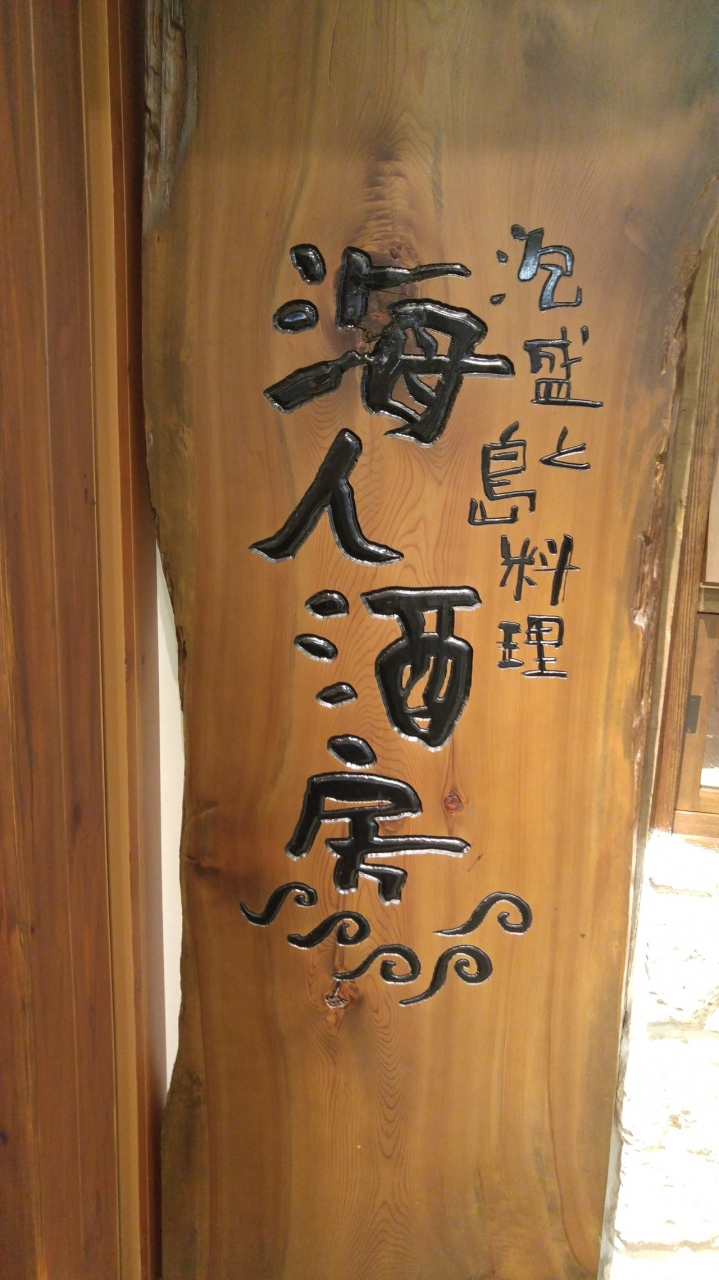 泡盛と島料理
海人酒房